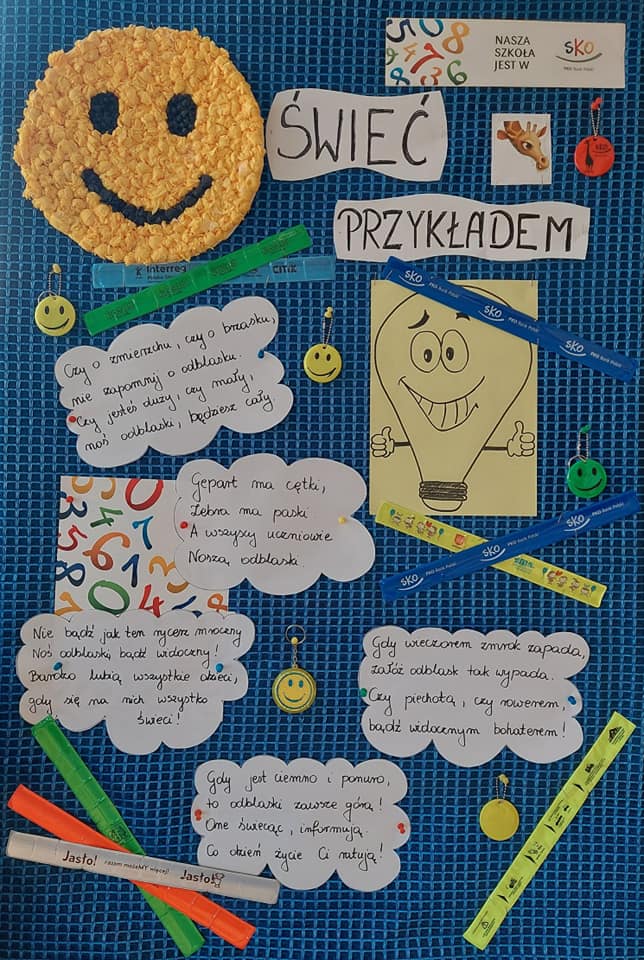 NASZA
SZKOŁA
JEST W
SKO
PKO Bank Polski
ŚWIEĆ
PRZYKŁADEM
Interreg
SKO PKO Bank Polski SKO PKO Bank Polski SKO
Czy o zmierzchu, czy o brzasku,
nie zapomnij o odblasku.
Czy jesteś duży, czy mały,
noś odblaski, będziesz cały
Gepart ma cętki,
Zebra ma paski
A wszyscy uczniowie
Noszą odblaski.
SKO PKO Bank Polski SKO PKO Bank Polski SKO
Nie bądź jak ten rycerz mroczny
Noś odblaski, bądź widoczny!
Bardzo lubią wszystkie dzieci,
gdy się na nich wszystko
świeci!
Gdy wieczorem zmrok zapada,
załóż odblask tak wypada.
Czy piechotą, czy rowerem,
bądź widocznym bohaterem!
Gdy jest ciemno i ponuro,
to odblaski zawsze górą!
One świecąc, informują.
Co dzień życie Ci ratują!
Jasło! razem możemy więcej! Jasło!